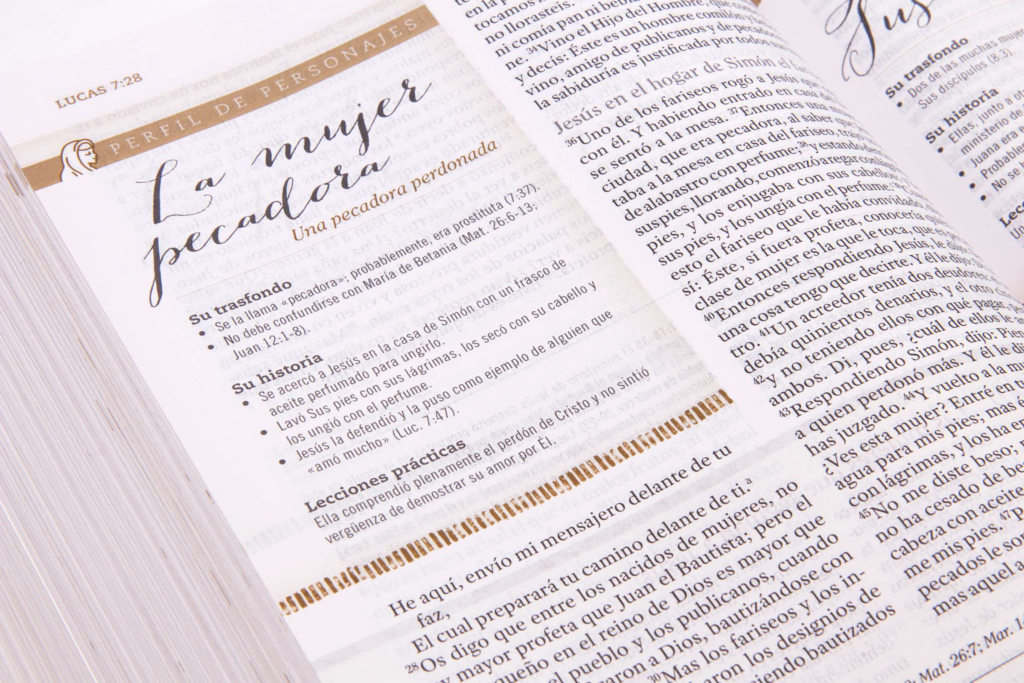 LUCAS 7:28
PERFIL DE PERSONAJES
La mujer
pecadora
Una pecadora perdonada
Su trasfondo
• Se la llama «pecadora»; probablemente, era prostituta (7:37).
• No debe confundirse con María de Betania (Mat. 26:6-13;
Juan 12:1-8).
Su historia
• Se acercó a Jesús en la casa de Simón con un frasco de
aceite perfumado para ungirlo.
• Lavó Sus pies con sus lágrimas, los secó con su cabello y
los ungió con el perfume.
• Jesús la defendió y la puso como ejemplo de alguien que
«amó mucho» (Luc. 7:47).
Lecciones prácticas
Ella comprendió plenamente el perdón de Cristo y no sintió
vergüenza de demostrar su amor por Él.
He aquí, envío mi mensajero delante de tu
faz,
El cual preparará tu camino delante de ti.ª
28Os digo que entre los nacidos de mujeres, no
mayor profeta que Juan el Bautista; pero el
queño en el reino de Dios es mayor que
pueblo y los publicanos, cuando
aron a Dios, bautizándose con
30Mas los fariseos y los in-
aron los designios de
iendo bautizados
en la
tocamos
no llorasteis.
ni comía pan ni bebí
34Vino el Hijo del Hombre, que
y decís: Éste es un hombre comilón y
vino, amigo de publicanos y de pecado
la sabiduría es justificada por todos
Jesús en el hogar de Simón el
36Uno de los fariseos rogó a Jesús que
con él. Y habiendo entrado en casa
se sentó a la mesa. 37Entonces una
ciudad, que era pecadora, al saber
taba a la mesa en casa del fariseo, traj
de alabastro con perfume; 38y estando detr
sus pies, llorando, comenzó a regar con lág
pies, y los enjugaba con sus cabello
sus pies, y los ungía con el perfume.
esto el fariseo que le había convidado
sí: Éste, si fuera profeta, conocería
clase de mujer es la que le toca, que
40Entonces respondiendo Jesús, le
una cosa tengo que decirte. Y él le dijo
tro. 41Un acreedor tenía dos deudores
debía quinientos denarios, y el otro
42y no teniendo ellos con qué pagar,
ambos. Di, pues, ¿cuál de ellos le
43Respondiendo Simón, dijo: Pien
a quien perdonó más. Y él le di
has juzgado. 44Y vuelto a la m
¿Ves esta mujer? Entré en tu
agua para mis pies; mas é
con lágrimas, y los ha en
45No me diste beso;
no ha cesado de be
cabeza con aceite
me mis pies. 47P
pecados le so
mas aquel a
Mat. 26:7; Mar. 1
Su trasfondo
• Dos de las muchas muje
Sus discípulos (8:3).
Su historia
• Ellas, junto a ot
ministerio de
• Juana era
• Probable
• No se
Lec